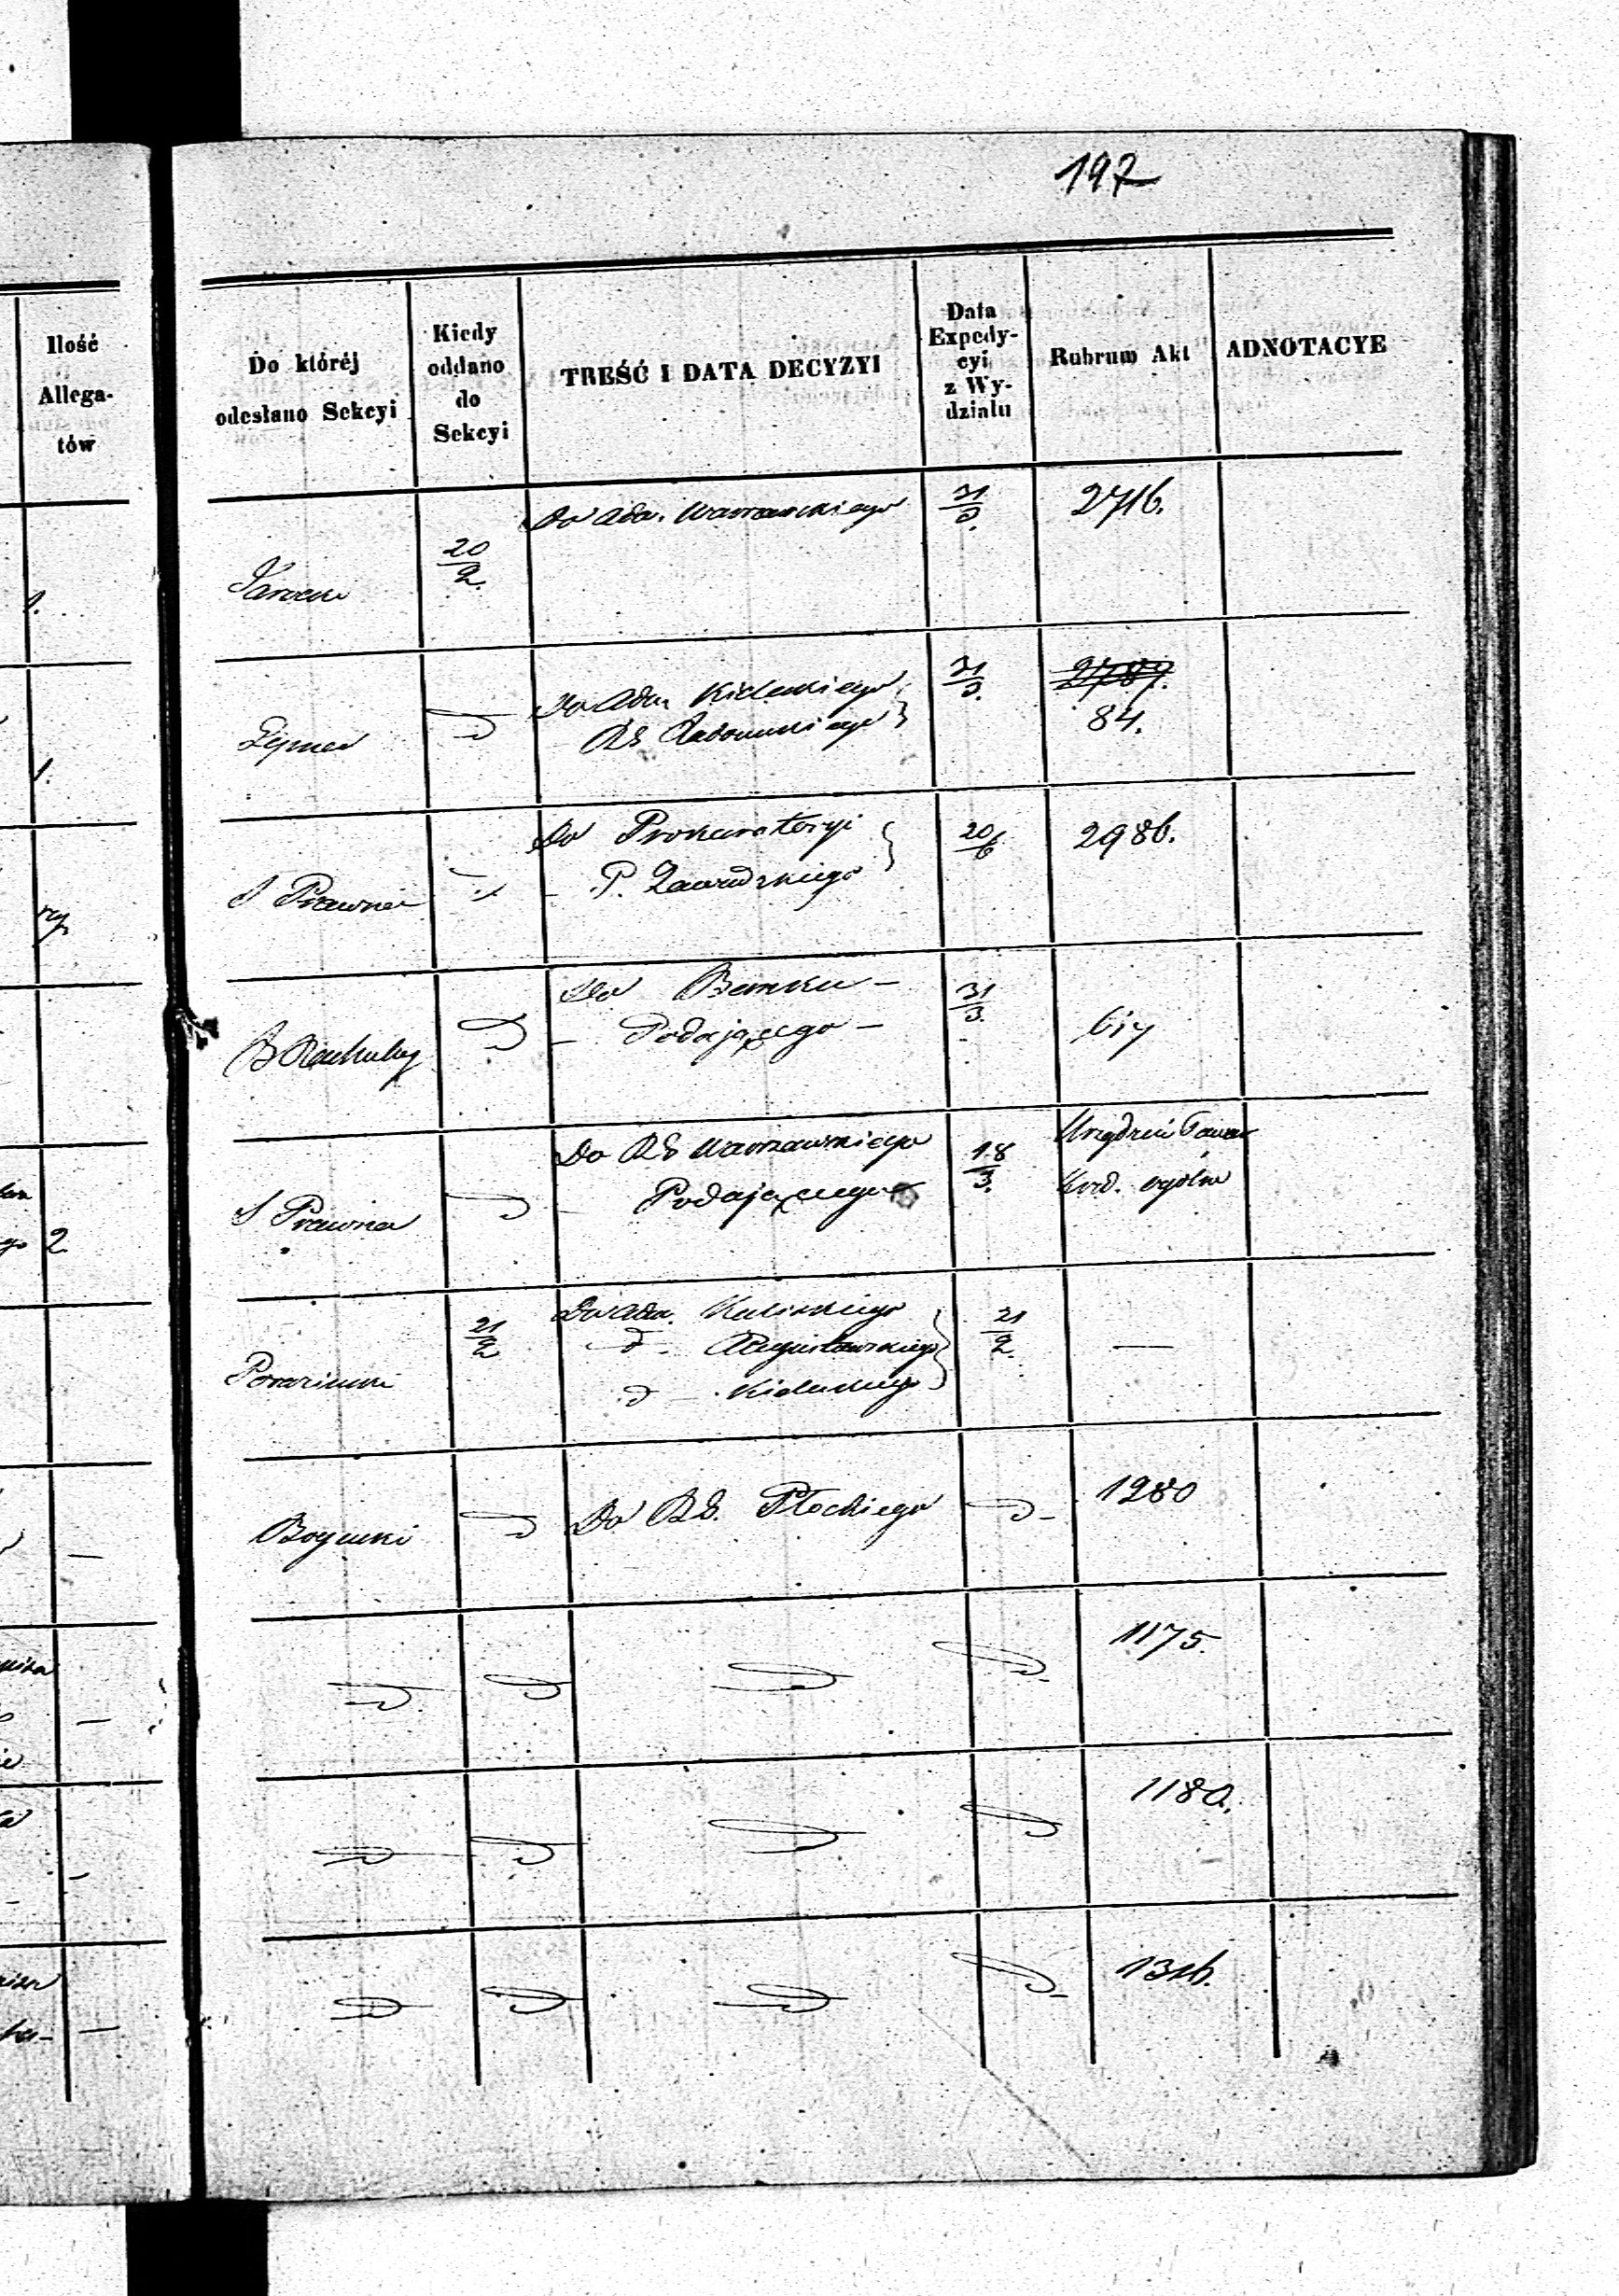 197
Ilość
Allega-
tów
Do któréj
odesłano Sekcyi
Kiedy
oddano
do
Sekcyi
TREŚĆ I DATA DECYZYI
Data
Expedy-
cyi
z Wy-
działu
Rubrum Akt
ADNOTACYE
20/2.
Do Adm. Warszawskiego
31/3.
2716.
1.
Do Adm Kieleckiego
RG Radomskiego
31/3.
84.
1.
S Prawna
Do Prokuratoryi
P. Zawadzkiego
20/6
2986.
B Rachuby
Do Banku —
— Podającego —
31/3.
S Prawna
Do RG Warszawskiego
Podającego
18/3.
ogólne
2
21/2
Do Adm. Kaliskiego
d Augustowskiego
d — Kieleckiego
21/2.
—
Bogucki
Do RG. Płockiego
1280
—
1175.
—
1180.
1316.
—